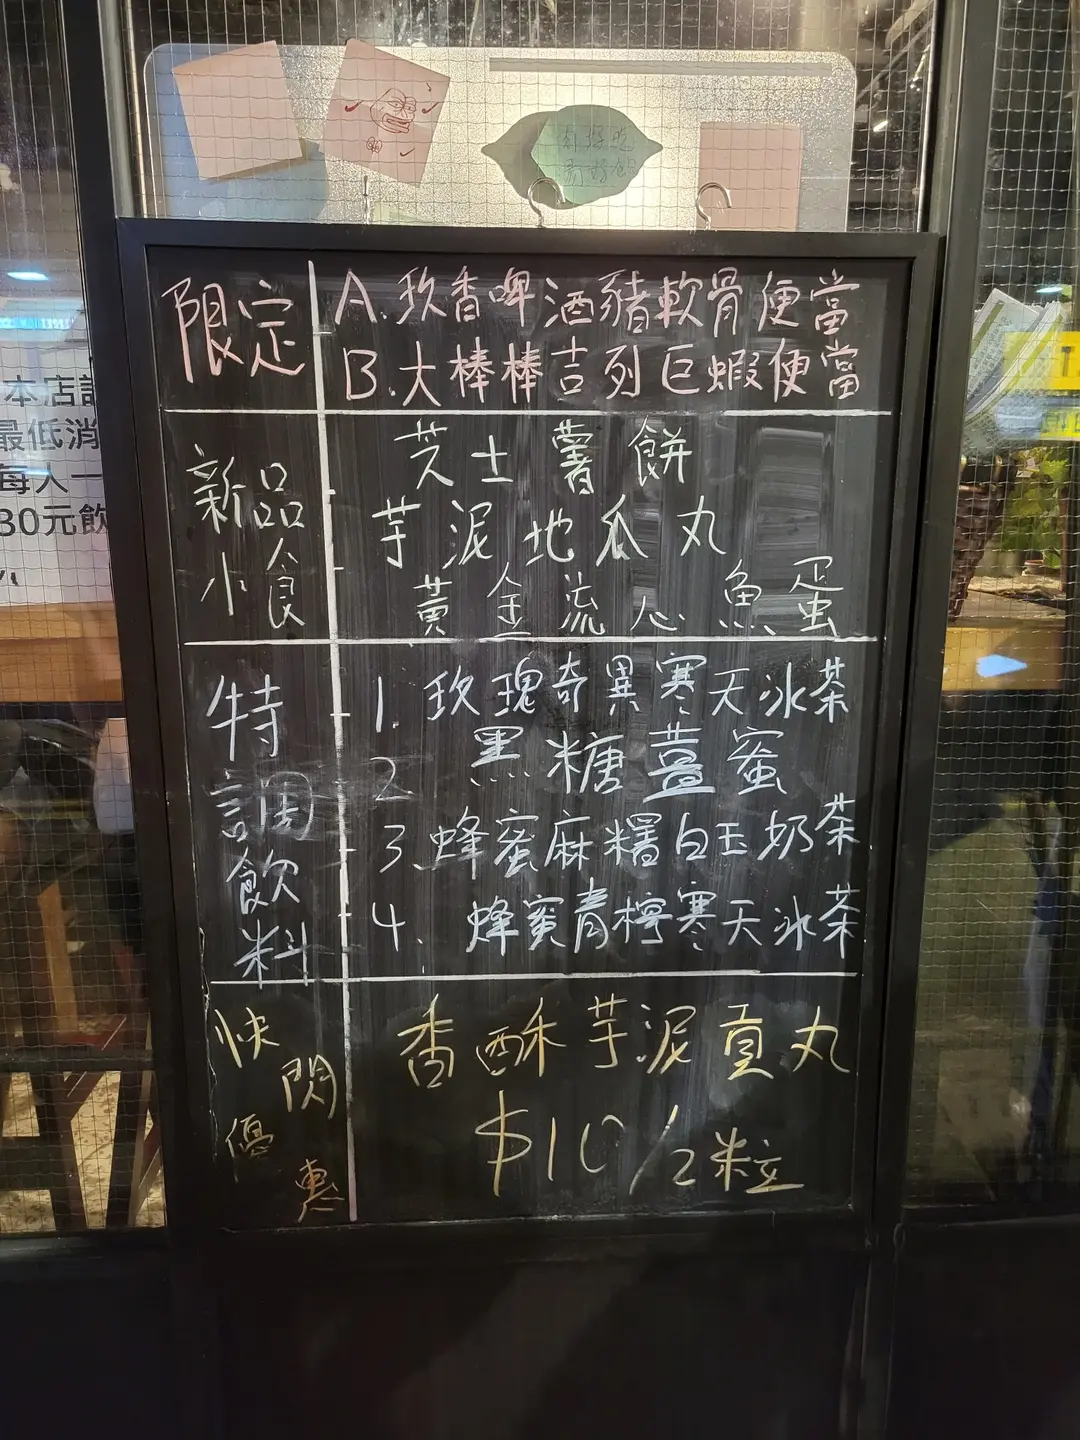 限定
A. 玖香啤酒豬軟骨便當
B. 大棒棒吉列巨蝦便當
新品
小食
芝士薯餅
芋泥地瓜丸
黃金流心魚蛋
特
調
飲
料
1. 玫瑰奇異寒天冰茶
2 黑糖薑蜜
3. 蜂蜜麻糬白玉奶茶
4. 蜂蜜青檸寒天冰茶
快
閃
優
惠
香酥芋泥貢丸
$10/2粒
本店
最低消
每人一
30元飲